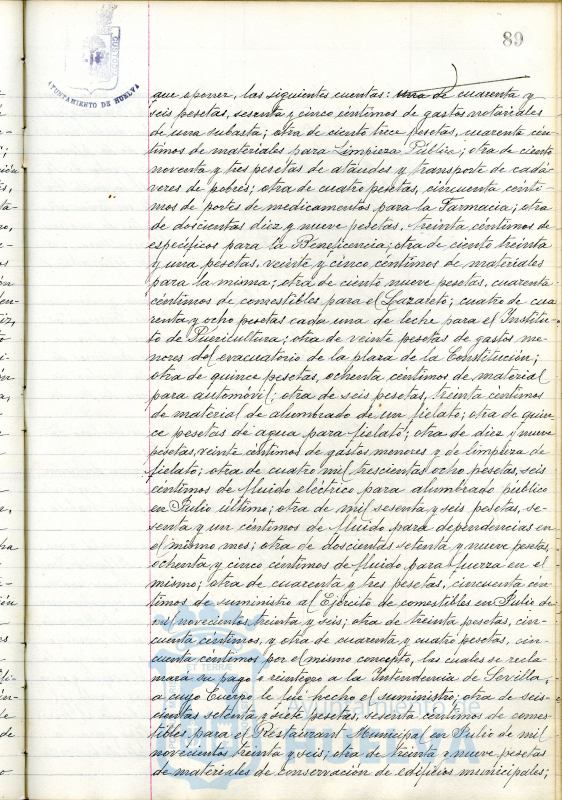 89
CUSTODIA
AYUNTAMIENTO DE HUELVA
que oponer, las siguientes cuentas: una de cuarenta y
seis pesetas, sesenta y cinco céntimos de gastos notariales
de una subasta; otra de ciento trece pesetas, cuarenta cén-
timos de materiales para Limpieza Pública; otra de ciento
noventa y tres pesetas de ataudes y transporte de cadá-
veres de pobres; otra de cuatro pesetas, cincuenta cénti-
mos de portes de medicamentos para la Farmacia; otra
de doscientas diez y nueve pesetas, treinta céntimos de
específicos para la Beneficencia; otra de ciento treinta
y una pesetas, veinte y cinco céntimos de materiales
para la misma; otra de ciento nueve pesetas, cuarenta
céntimos de comestibles para el Lazareto; cuatro de cua
renta y ocho pesetas cada una de leche para el Institu-
to de Puericultura; otra de veinte pesetas de gastos me-
nores del evacuatorio de la plaza de la Constitución;
otra de quince pesetas, ochenta céntimos de material
para automóvil; otra de seis pesetas, treinta céntimos
de material de alumbrado de un fielato; otra de quin-
ce pesetas de agua para fielato; otra de diez y nueve
pesetas, veinte céntimos de gastos menores y de limpieza de
fielato; otra de cuatro mil trescientas ocho pesetas, seis
céntimos de fluido eléctrico para alumbrado público
en Julio último; otra de mil sesenta y seis pesetas, se-
senta y un céntimos de fluido para dependencias en
el mismo mes; otra de doscientas setenta y nueve pesetas,
ochenta y cinco céntimos de fluido para fuerza en el
mismo; otra de cuarenta y tres pesetas, cincuenta cén-
timos de suministro al Ejército de comestibles en Julio de
mil novecientos treinta y seis; otra de treinta pesetas, cin-
cuenta céntimos, y otra de cuarenta y cuatro pesetas, cin-
cuenta céntimos por el mismo concepto, las cuales se recla-
mará su pago o reintegro a la Intendencia de Sevilla,
a cuyo Cuerpo le fué hecho el suministro; otra de seis-
cientas setenta y siete pesetas, sesenta céntimos de comes
tibles para el Restaurant Municipal en Julio de mil
novecientos treinta y seis; otra de treinta y nueve pesetas
de materiales de conservación de edificios municipales;
ET TERRÆ
Ayuntamiento de